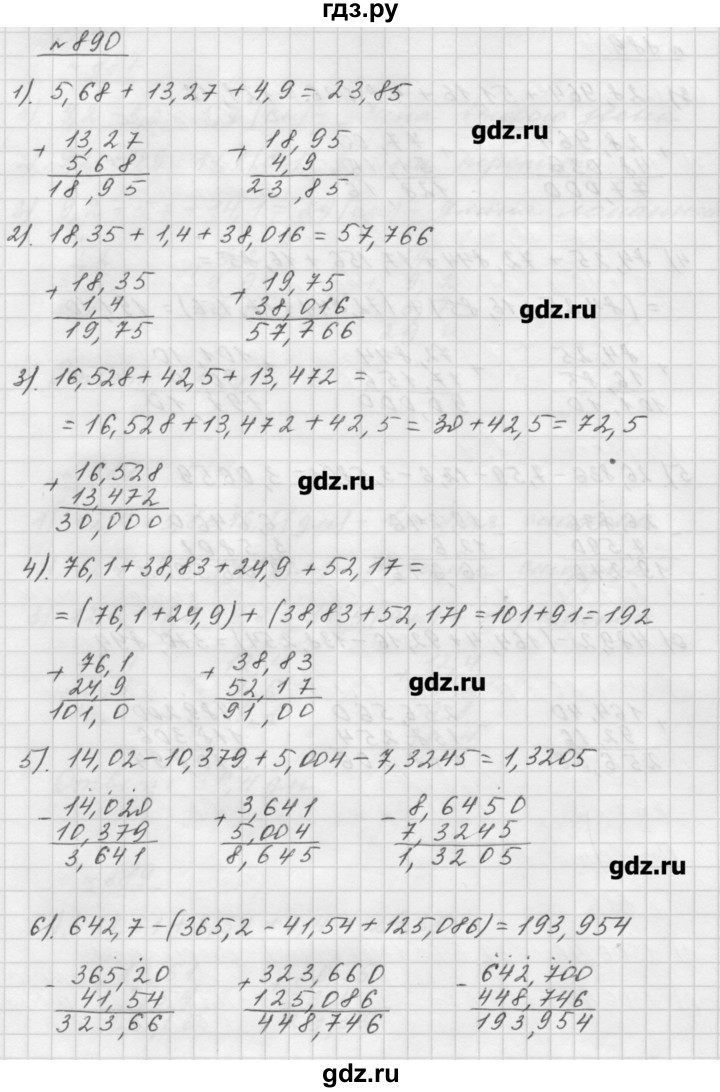 гдз.ру
№890
1). 5,68 + 13,27 + 4,9 = 23,85
+ 13,27 + 18,95
5,68 4,9
18,95 23,85
gdz.ru
2). 18,35 + 1,4 + 38,016 = 57,766
+ 18,35 + 19,75
1,4 38,016
19,75 57,766
gdz.ru
3). 16,528 + 42,5 + 13,472 =
= 16,528 + 13,472 + 42,5 = 30 + 42,5 = 72,5
+ 16,528
13,472
30,000
gdz.ru
4). 76,1 + 38,83 + 24,9 + 52,17 =
= (76,1 + 24,9) + (38,83 + 52,17) = 101 + 91 = 192
+ 76,1 + 38,83
24,9 52,17
101,0 91,00
gdz.ru
5). 14,02 - 10,379 + 5,004 - 7,3245 = 1,3205
- 14,020 + 3,641 - 8,6450
10,379 5,004 7,3245
3,641 8,645 1,3205
gdz.ru
6). 642,7 - (365,2 - 41,54 + 125,086) = 193,954
- 365,20 + 323,660 - 642,700
41,54 125,086 448,746
323,66 448,746 193,954
гдз.ру